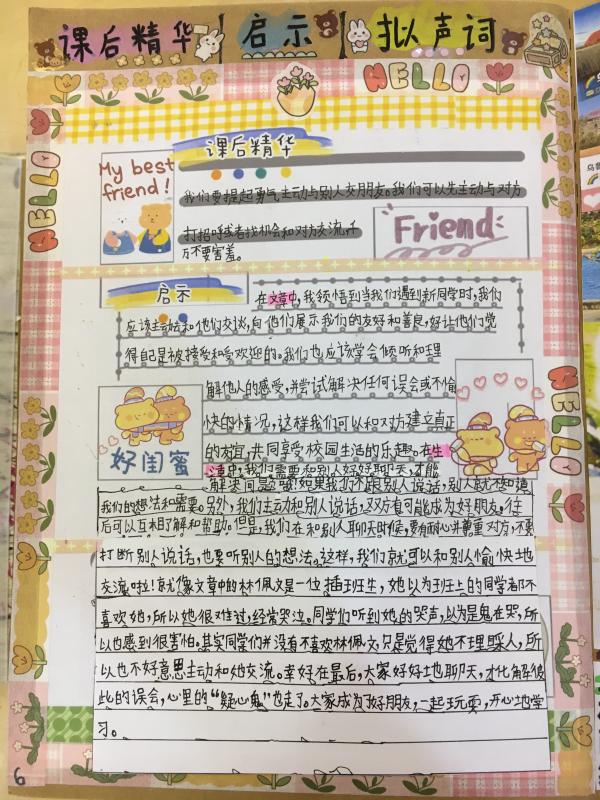 课后精华 启示 拟声词
HELLO
HELLO
HELLO
课后精华
My best
friend!
我们要提起勇气主动与别人交朋友。我们可以先主动与对方
打招呼或者找机会和对方交流,千
万不要害羞。
Friend
启示
在文章中,我领悟到当我们遇到新同学时,我们
应该主动去和他们交谈,向他们展示我们的友好和善良,好让他们觉
得自己是被接受和受欢迎的。我们也应该学会倾听和理
解他人的感受,并尝试解决任何误会或不愉
快的情况,这样我们可以和对方建立真正
的友谊,共同享受校园生活的乐趣。在生
活中,我们需要和别人好好聊天,才能
好闺蜜
解决问题哦!如果我们不跟别人说话,别人就不知道
我们的想法和需要。另外,我们主动和别人说话,双方有可能成为好朋友。往
后可以互相了解和帮助。但是,我们在和别人聊天时候,要有耐心并尊重对方,不要
打断别人说话,也要听别人的想法。这样,我们就可以和别人愉快地
交流啦!就像文章中的林佩文是一位插班生,她以为班上的同学都不
喜欢她,所以她很难过,经常哭泣。同学们听到她的哭声,以为是鬼在哭,所
以也感到很害怕。其实同学们并没有不喜欢林佩文,只是觉得她不理睬人,所
以也不好意思主动和她交流。幸好在最后,大家好好地聊天,才化解彼
此的误会,心里的“疑心鬼”也走了。大家成为了好朋友,一起玩耍,开心地学
习。
9